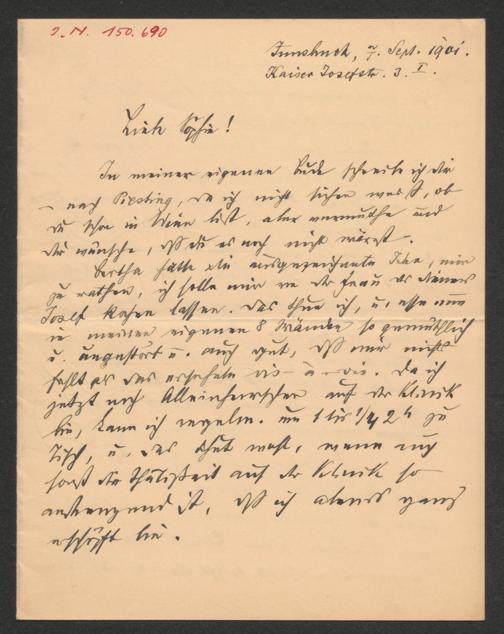 I. N. 150.690
Innsbruck, 7. Sept. 1901.
Kaiser Josefstr. 3. I.
Liebe Sophie!
In meiner eigenen Bude schreibe ich dir
– nach Piesting, da ich nicht sicher weiß, ob
du schon in Wien bist, aber vermuthe und
dir wünsche, daß du es noch nicht wärest.
Bertha hatte die ausgezeichnete Idee, mir
zu rathen, ich solle mir von der Frau des Dieners
Josef kochen lassen. Das thue ich, u. esse nun
in meinen eigenen 8 Wänden so gemüthlich
u. ungestört u. auch gut, daß mir nichts
fehlt als das vis-à-vis. Da ich
jetzt noch Alleinherrscher auf der Klinik
bin, kann ich regelm. um 1 bis 1/4 2 h zu
Tisch, u. das thut wohl, wenn auch
sonst die Thätigkeit auf der Klinik so
anstrengend ist, daß ich abends ganz
erschöpft bin.